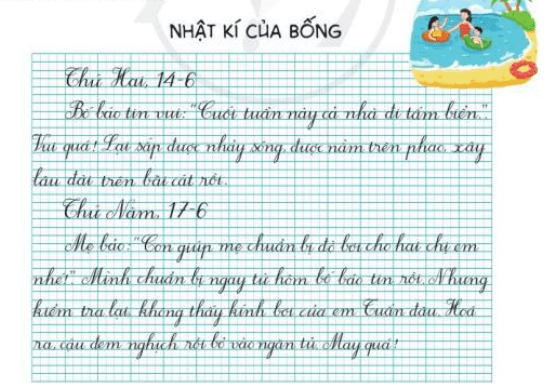 NHẬT KÍ CỦA BỐNG
Thứ Hai, 14-6
Bố báo tin vui: "Cuối tuần này cả nhà đi tắm biển.".
Vui quá! Lại sắp được nhảy sóng, được nằm trên phao, xây
lâu đài trên bãi cát rồi.
Thứ Năm, 17-6
Mẹ bảo: "Con giúp mẹ chuẩn bị đồ bơi cho hai chị em
nhé!". Mình chuẩn bị ngay từ hôm bố báo tin rồi. Nhưng
kiểm tra lại, không thấy kính bơi của em Tuấn đâu. Hoá
ra, cậu đem nghịch rồi bỏ vào ngăn tủ. May quá!